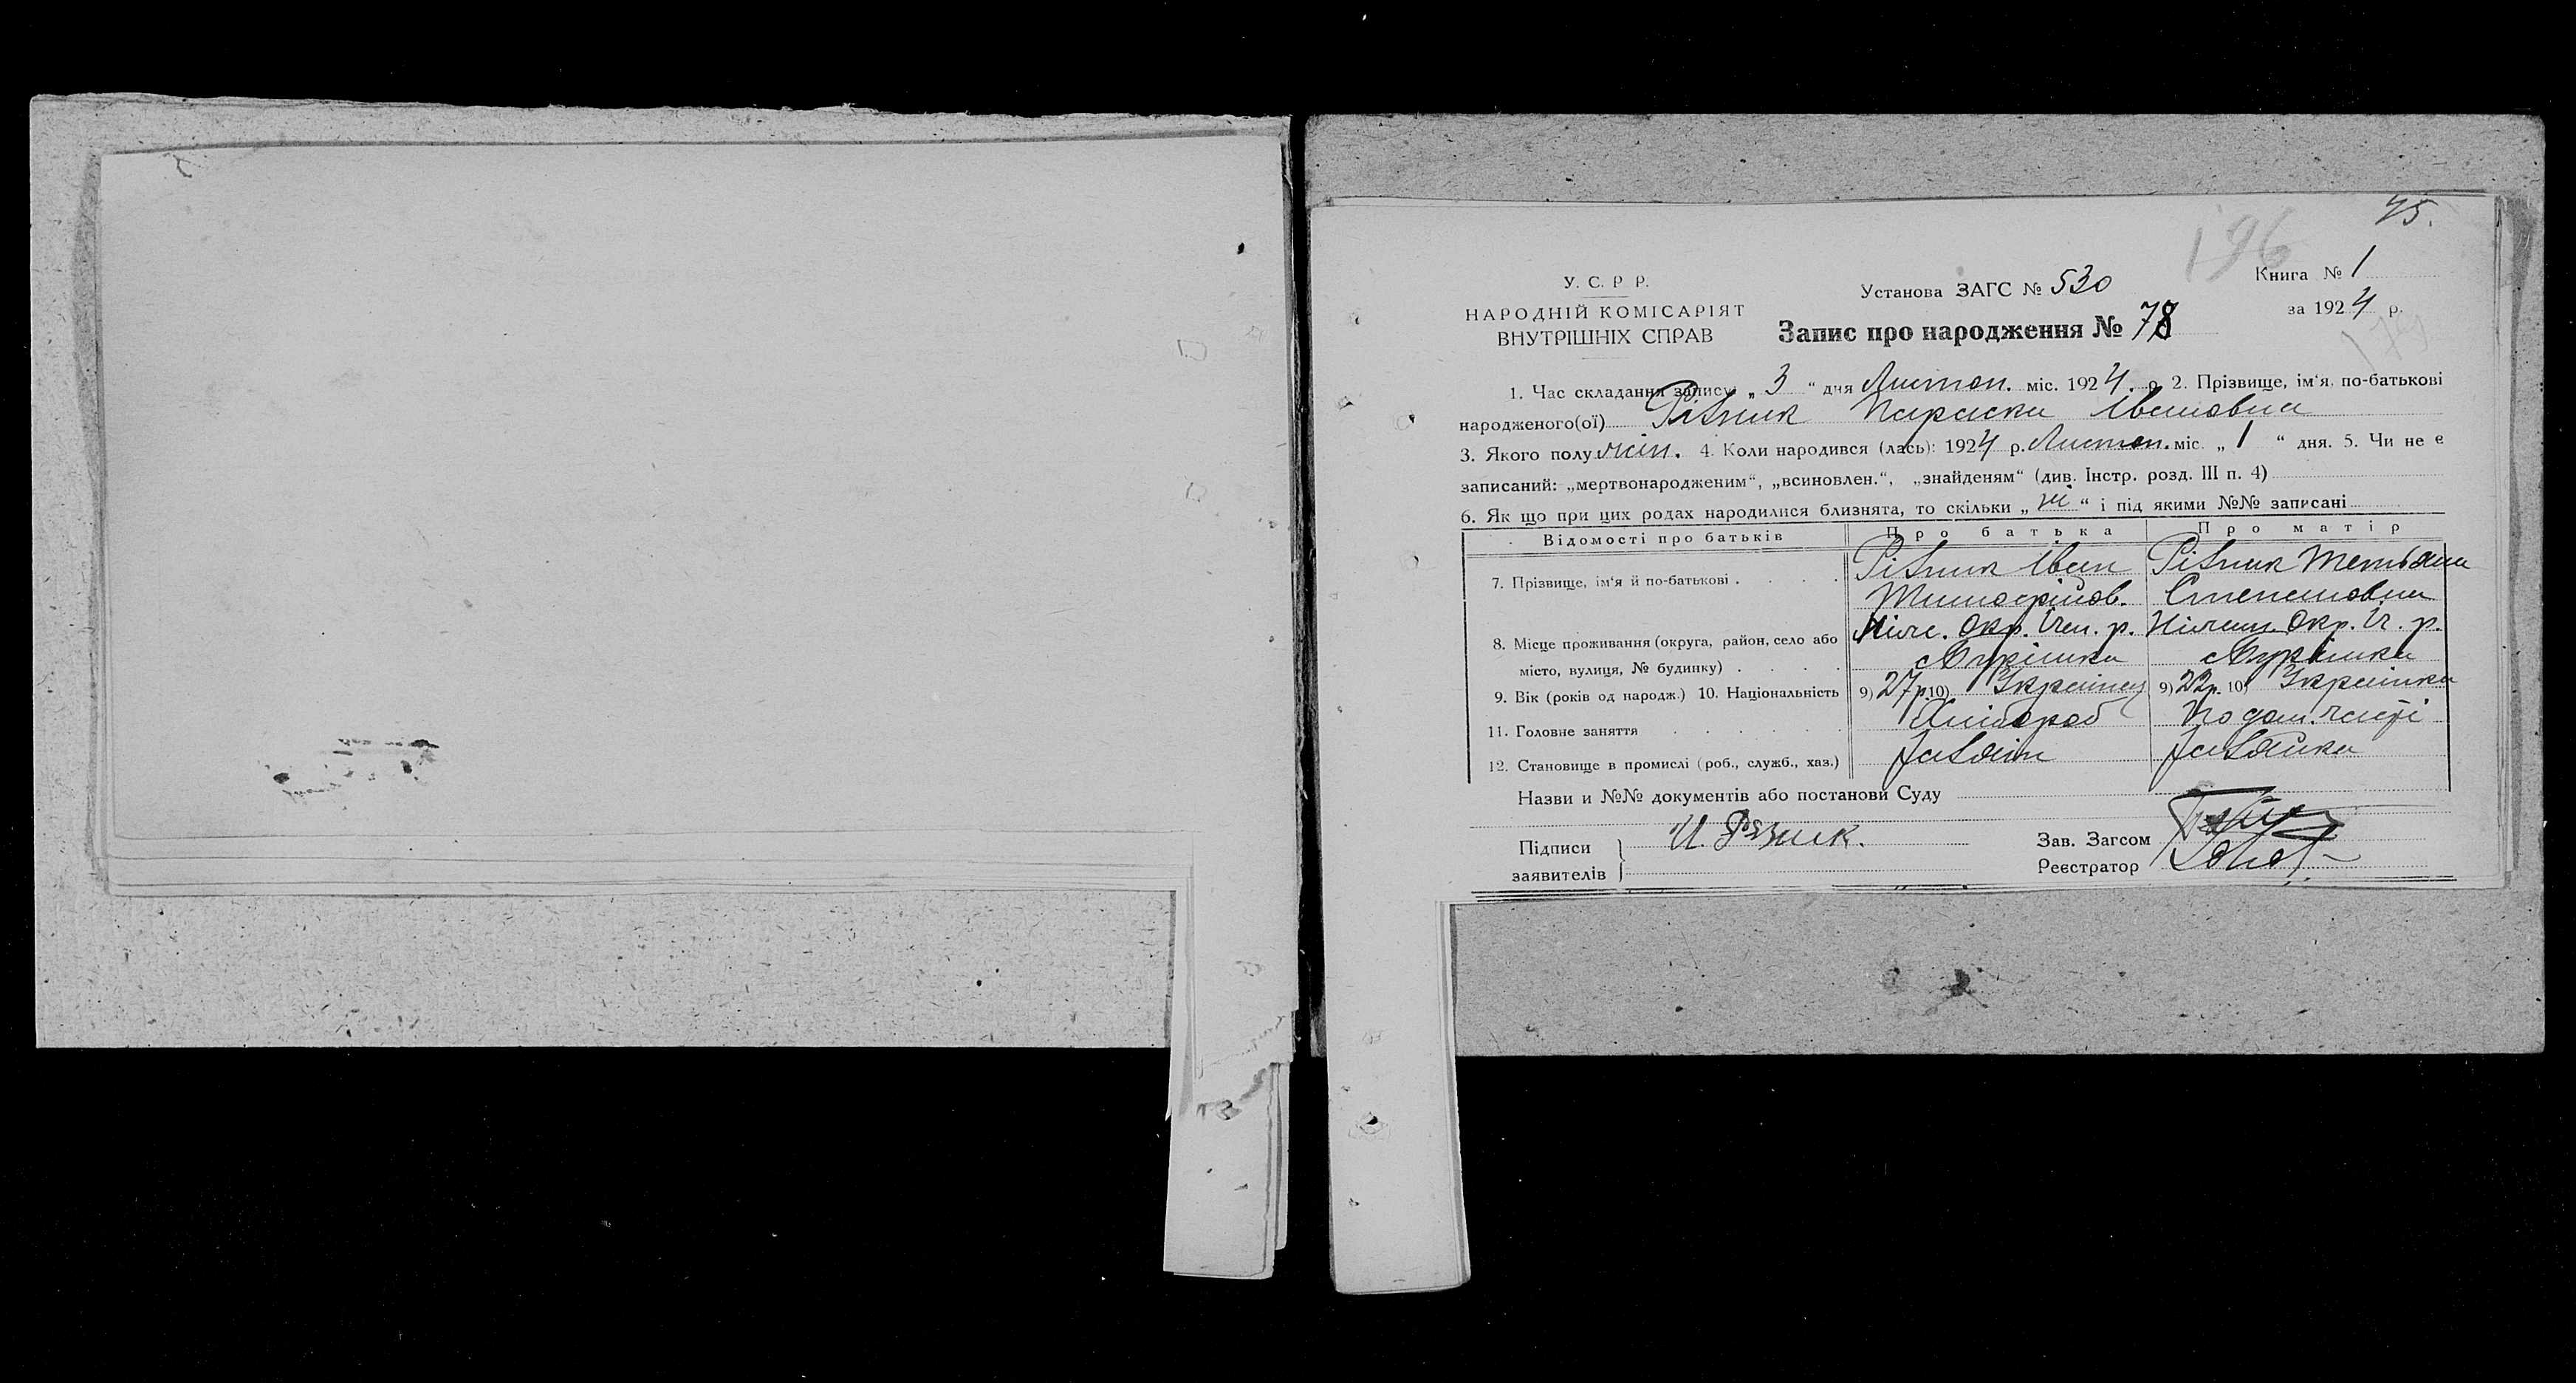 45.
196
У. С. Р Р.
НАРОДНІЙ КОМІСАРІЯТ
ВНУТРІШНІХ СПРАВ
Установа ЗАГС № 530
Книга № 1
за 1924 р.
Запис про народження № 78
1. Час складання запису „ 3 “ дня Листоп. міс. 1924 . р. 2. Прізвище, ім‘я, по-батькові
народженого(ої) Різник Параска Івановна
3. Якого полу жін. 4. Коли народився (лась): 1924 р. Листоп. міс. „ 1 “ дня. 5. Чи не є
записаний: „мертвонародженим“, „всиновлен.“, „знайденям“ (див. Інстр. розд. III п. 4)
6. Як що при цих родах народилися близнята, то скільки „ ні “ і під якими №№ записані
Відомості про батьків Про батька Про матір
7. Прізвище, ім‘я й по-батькові . . . . . Різник Іван Різник Тетьяна
Тимофійов. Степановна
8. Місце проживання (округа, район, село або Ніже. Окр. Ічен. р. Ніжен. Окр. Іч. р.
місто, вулиця, № будинку) . . . .
9. Вік (років од народж.) 10. Національність 9) 27р. 10) Українец 9) 22р. 10) Українка
11. Головне заняття . . . . . . Хлібороб По дом. части
12. Становище в промислі (роб., служб., хаз.) Хазяін Хазяйка
Назви и №№ документів або постанови Суду
Підписи
заявителів
И. Рѣзник.
Зав. Загсом
Реєстратор